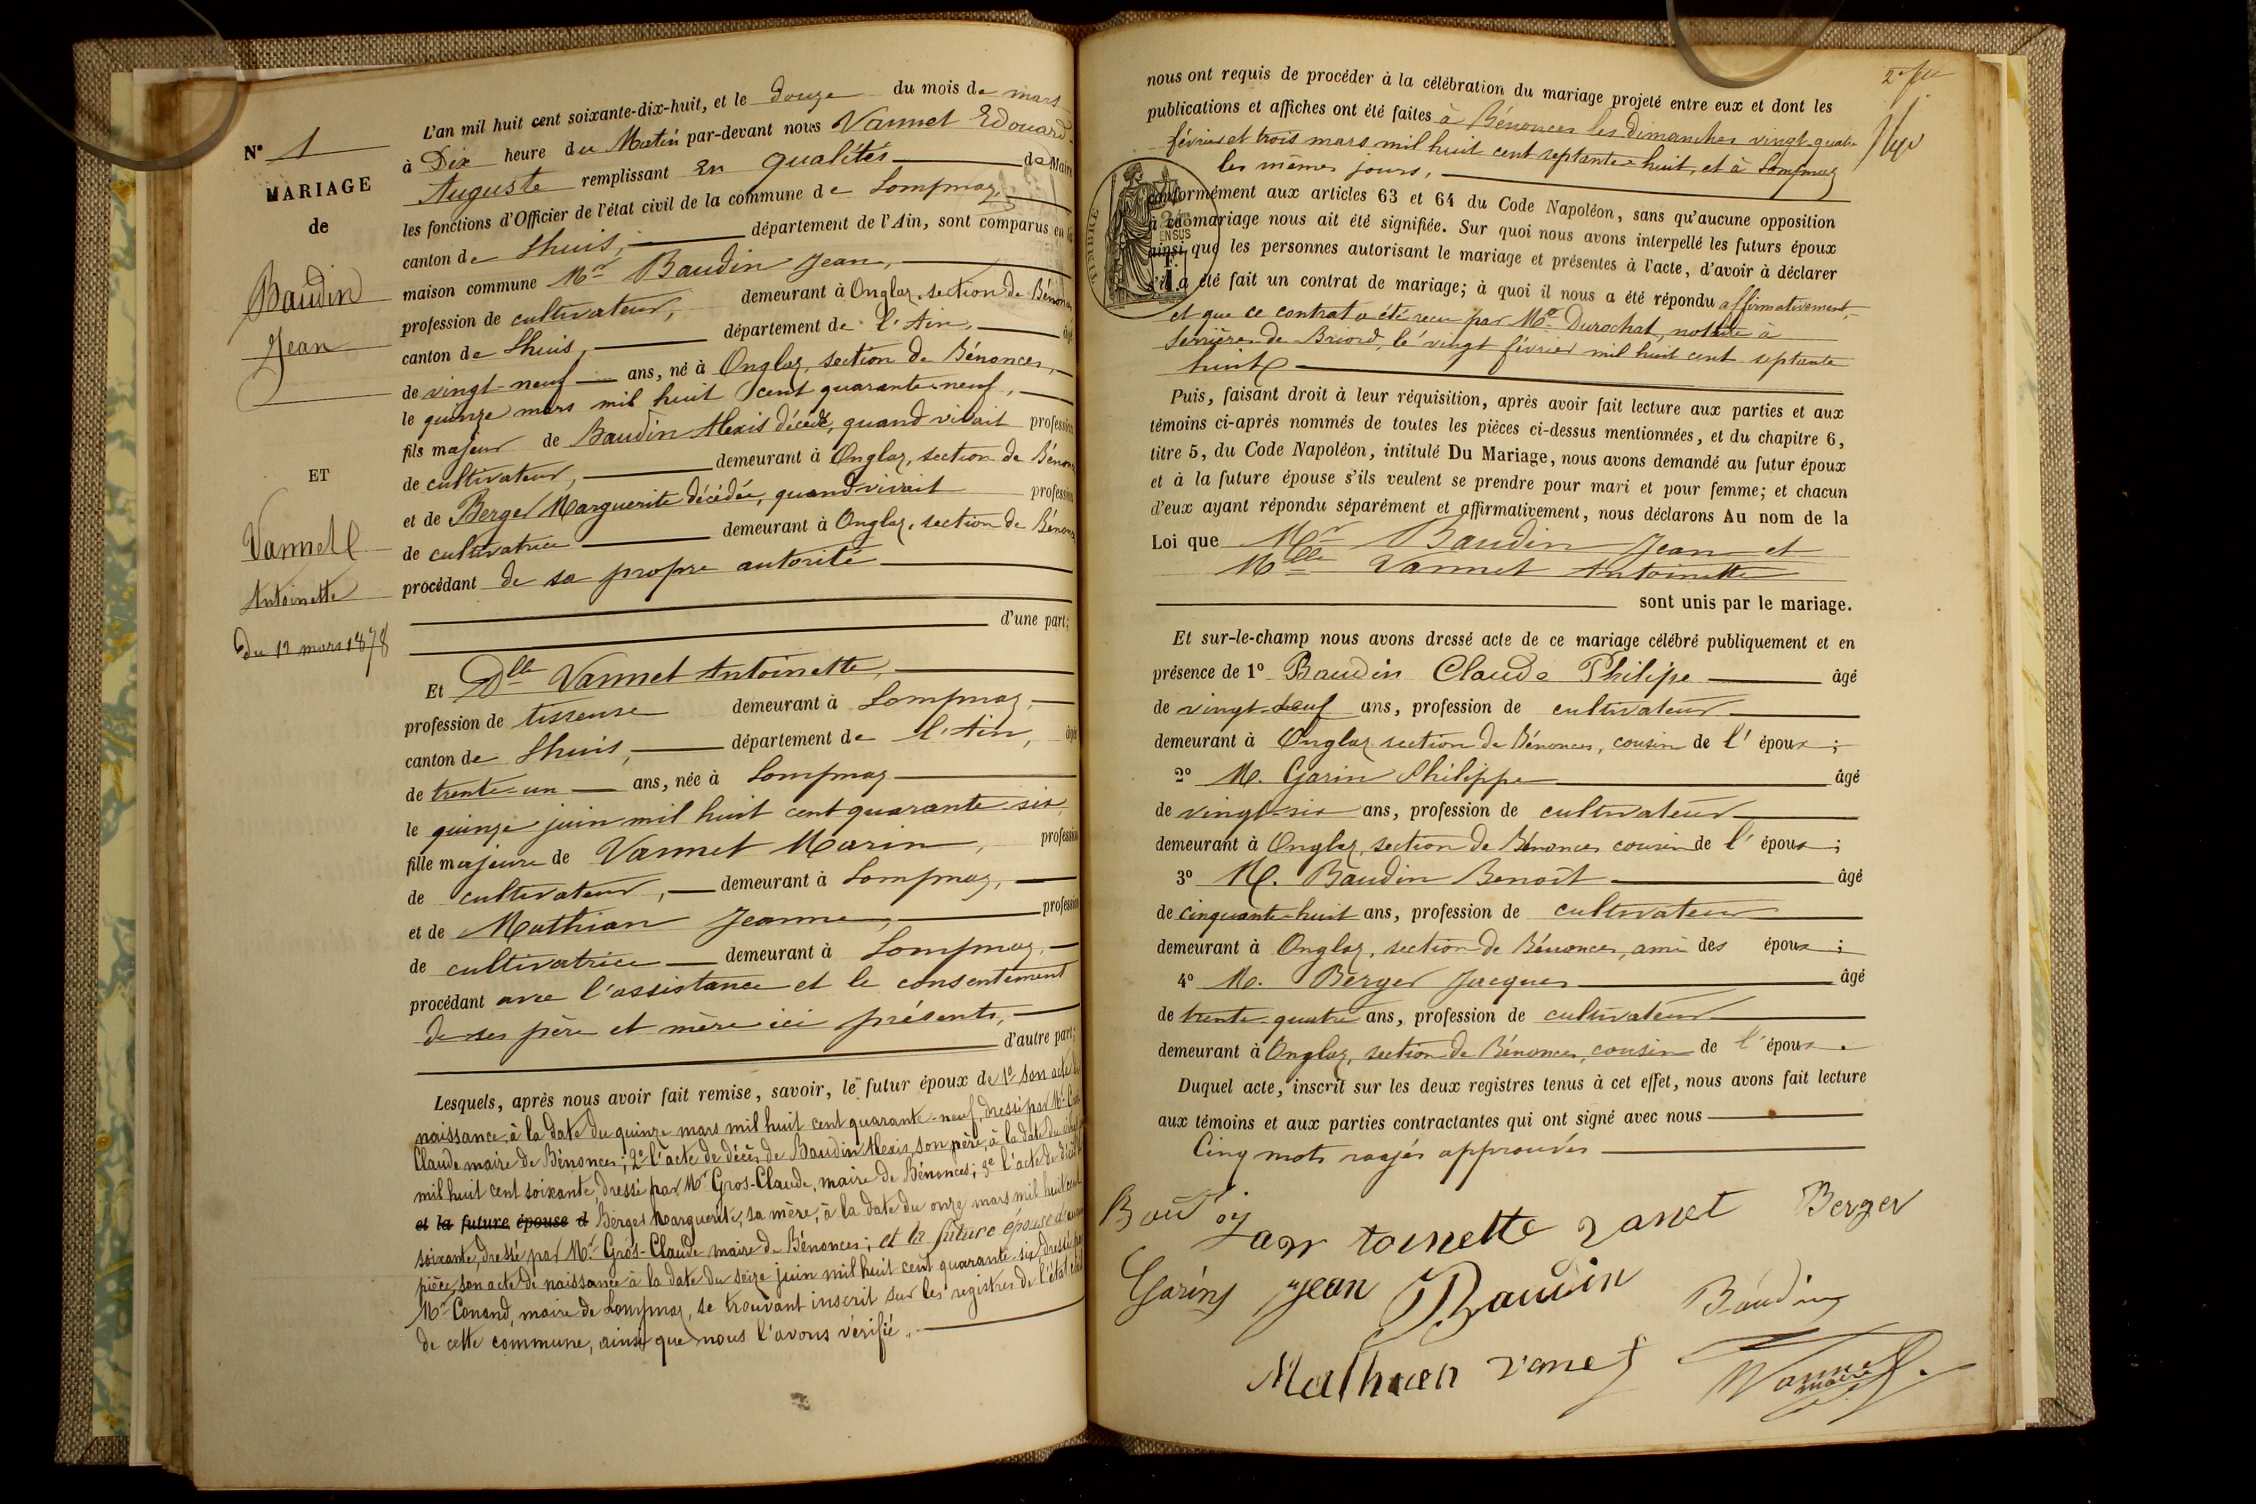 N° 1
MARIAGE
de
Baudin
Jean
ET
Vannet
Antoinette
du 12 mars 1878
L'an mil huit cent soixante-dix-huit, et le douze du mois de mars
à Dix heure du Matin par-devant nous Vannet Edouard
Auguste remplissant en qualités de Maire
les fonctions d'Officier de l'état civil de la commune de Lompnaz,
canton de Lhuis, département de l'Ain, sont comparus en la
maison commune Mr Baudin Jean,
profession de cultivateur, demeurant à Onglaz, section de Bénonces
canton de Lhuis, département de l'Ain, âgé
de vingt-neuf ans, né à Onglaz, section de Bénonces,
le quinze mars mil huit cent quarante-neuf,
fils majeur de Baudin Alexis décédé, quand vivait profession
de cultivateur, demeurant à Onglaz, section de Bénonces
et de Berger Marguerite décédée, quand vivait profession
de cultivatrice demeurant à Onglaz, section de Bénonces
procédant de sa propre autorité
d'une part;
Et Dlle Vannet Antoinette,
profession de tisseuse demeurant à Lompnaz,
canton de Lhuis, département de l'Ain, âgée
de trente-un ans, née à Lompnaz
le quinze juin mil huit cent quarante six,
fille majeure de Vannet Marin, profession
de cultivateur, demeurant à Lompnaz,
et de Mathian Jeanne, profession
de cultivatrice demeurant à Lompnaz,
procédant avec l'assistance et le consentement
de ses père et mère ici présents,
d'autre part;
Lesquels, après nous avoir fait remise, savoir, le futur époux de 1° son acte de
naissance à la date du quinze mars mil huit cent quarante-neuf, dressé par Mr
Claude maire de Bénonces; 2° l'acte de décès de Baudin Alexis, son père, à la date du
mil huit cent soixante, dressé par Mr Gros-Claude, maire de Bénonces; 3° l'acte de décès
et la future épouse d Berger Marguerite, sa mère, à la date du onze mars mil huit cent
soixante, dressé par Mr Gros-Claude maire de Bénonces; et la future épouse d'
pièce, son acte de naissance à la date du seize juin mil huit cent quarante-six, dressé par
Mr Conand, maire de Lompnaz, se trouvant inscrit sur les registres de l'état civil
de cette commune, ainsi que nous l'avons vérifié.
2e
nous ont requis de procéder à la célébration du mariage projeté entre eux et dont les
publications et affiches ont été faites à Bénonces les dimanches vingt-quatre
février et trois mars mil huit cent septante-huit, et à Lompnaz
les mêmes jours,
conformément aux articles 63 et 64 du Code Napoléon, sans qu'aucune opposition
à ce mariage nous ait été signifiée. Sur quoi nous avons interpellé les futurs époux
ainsi que les personnes autorisant le mariage et présentes à l'acte, d'avoir à déclarer
s'il a été fait un contrat de mariage; à quoi il nous a été répondu affirmativement,
et que ce contrat a été reçu par Me Durochat, notaire à
Serrières-de-Briord, le vingt février mil huit cent septante
huit
TIMBRE
Puis, faisant droit à leur réquisition, après avoir fait lecture aux parties et aux
témoins ci-après nommés de toutes les pièces ci-dessus mentionnées, et du chapitre 6,
titre 5, du Code Napoléon, intitulé Du Mariage, nous avons demandé au futur époux
et à la future épouse s'ils veulent se prendre pour mari et pour femme; et chacun
d'eux ayant répondu séparément et affirmativement, nous déclarons Au nom de la
Loi que Mr Baudin Jean et
Mlle Vannet Antoinette
sont unis par le mariage.
Et sur-le-champ nous avons dressé acte de ce mariage célébré publiquement et en
présence de 1° Baudin Claude Philipe âgé
de vingt-neuf ans, profession de cultivateur
demeurant à Onglaz section de Bénonces, cousin de l'époux;
2° M. Garin Philippe âgé
de vingt-six ans, profession de cultivateur
demeurant à Onglaz, section de Bénonces cousin de l'époux;
3° M. Baudin Benoît âgé
de cinquante-huit ans, profession de cultivateur
demeurant à Onglaz, section de Bénonces, ami des époux;
4° M. Berger Jacques âgé
de trente-quatre ans, profession de cultivateur
demeurant à Onglaz, section de Bénonces, cousin de l'époux.
Duquel acte, inscrit sur les deux registres tenus à cet effet, nous avons fait lecture
aux témoins et aux parties contractantes qui ont signé avec nous
Cinq mots rayés approuvés
toinette vanet Berger
Garin Jean Baudin Baudin
Mathian vanet
Vannet
maire